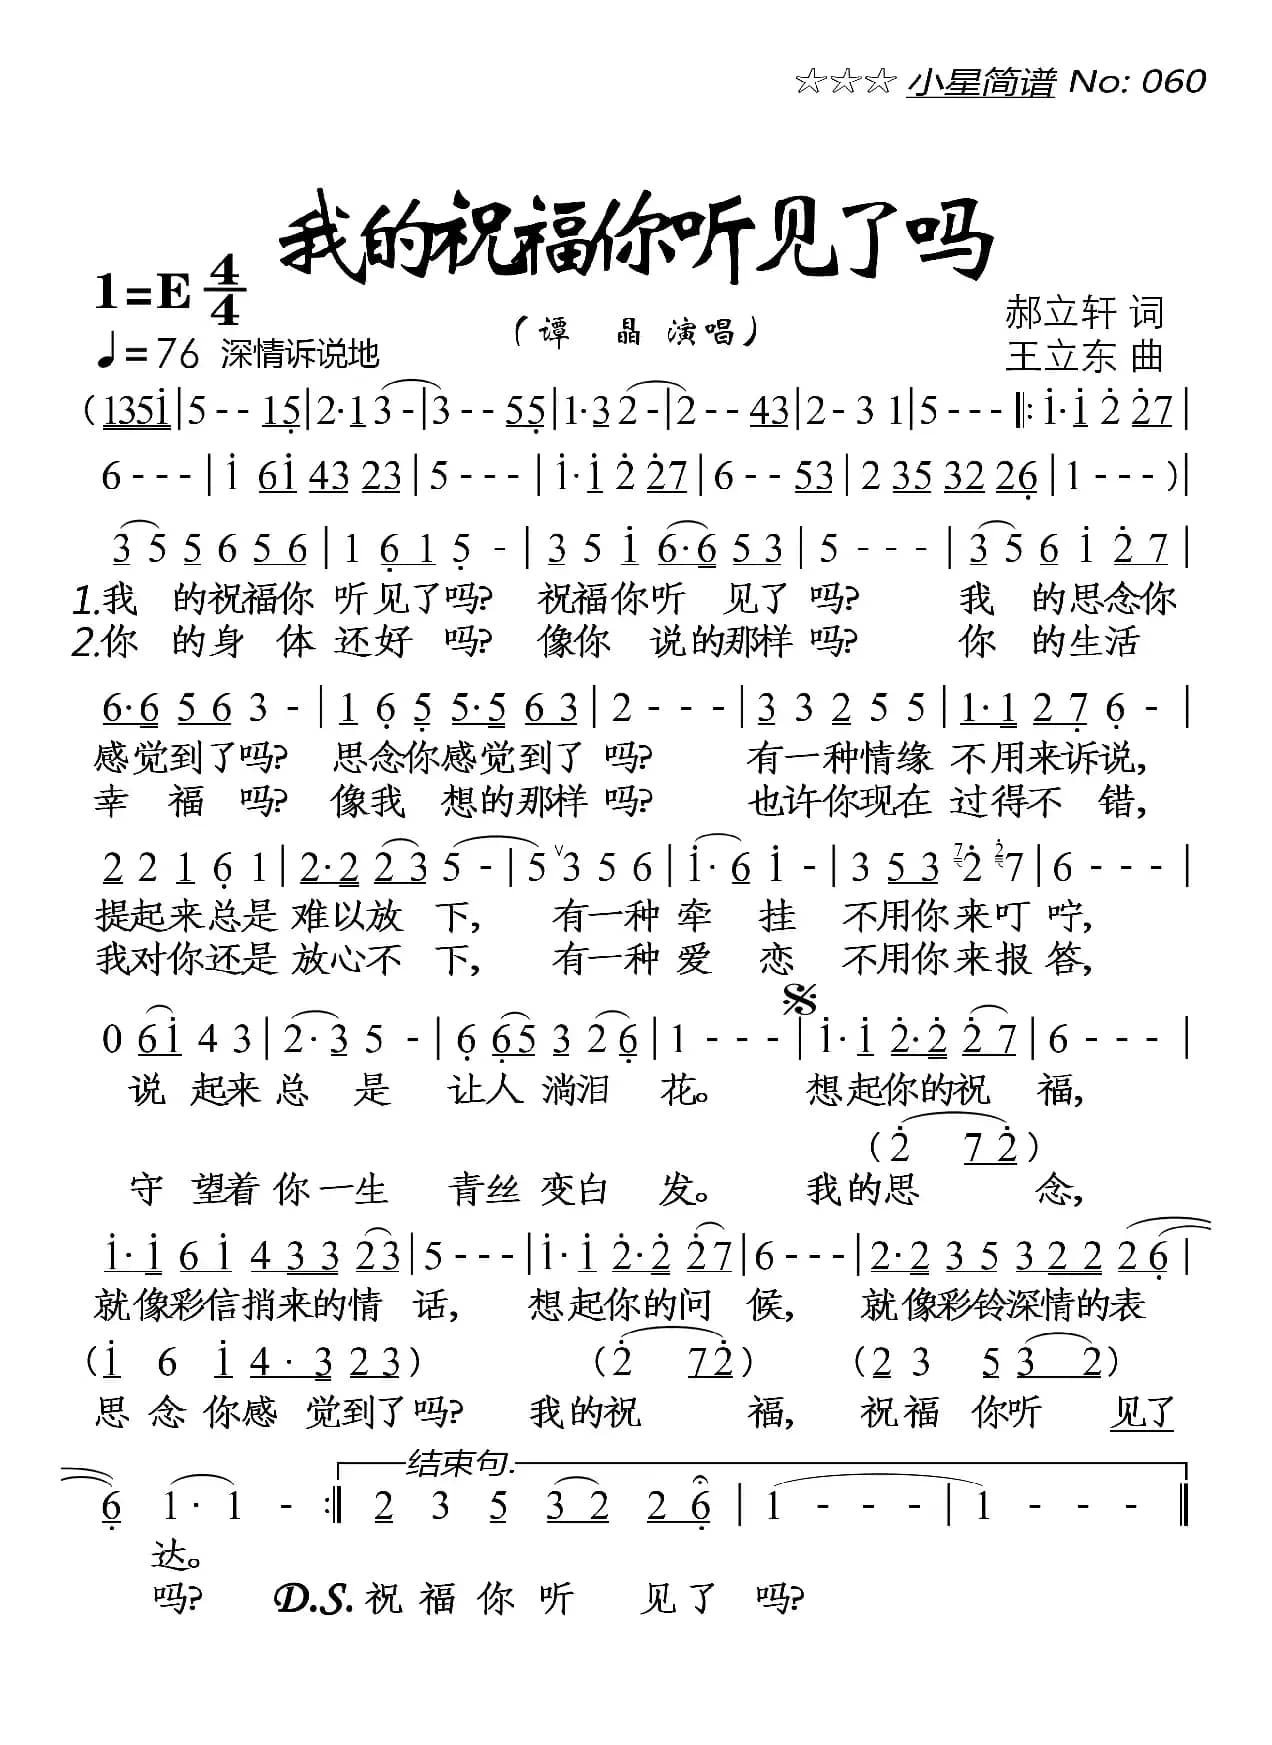 ☆☆☆ 小星简谱 No: 060
我的祝福你听见了吗
1=E 4/4
(谭 晶 演唱)
郝立轩 词
♩=76 深情诉说地
王立东 曲
(1351̇|5--15̣|2·13-|3--55̣|1·32-|2--43|2-31|5---‖:1̇·1̇2̇2̇7|
6---|1̇61̇4323|5---|1̇·1̇2̇2̇7|6--53|23532 26̣|1---)|
3 5 5 6 5 6|1 6̣ 1 5̣ -|3 5 1̇ 6·6 5 3|5---|3 5 6 1̇ 2̇ 7|
1.我 的祝福你 听见了吗? 祝福你听 见了 吗? 我 的思念你
2.你 的身 体 还好 吗? 像你 说的那样吗? 你 的生活
6·6 5 6 3 -|1 6̣ 5̣ 5·5 6 3|2---|3 3 2 5 5|1·1 2 7̣ 6̣ -|
感觉到了吗? 思念你感觉到了 吗? 有一种情缘 不用来诉说,
幸 福 吗? 像我 想的那样吗? 也许你现在 过得不 错,
2 2 1 6̣ 1|2·2 2 3 5 -|5 ∨3 5 6|1̇·6 1̇ -|3 5 3 7 2̇ 2̇ 7|6---|
提起来总是 难以放 下, 有一种 牵 挂 不用你来叮 咛,
我对你还是 放心不 下, 有一种 爱 恋 不用你来报 答,
0 6 1̇ 4 3|2·3 5 -|6̣ 6̣ 5 3 2 6̣|1---|1̇·1̇ 2̇·2̇ 2̇ 7|6---|
说 起来 总 是 让人 淌泪 花。 想起你的祝 福,
(2̇ 7 2̇)
守 望着 你 一生 青丝 变白 发。 我的思 念,
1̇·1̇ 6 1̇ 4 3 3 2 3|5---|1̇·1̇ 2̇·2̇ 2̇ 7|6---|2·2 3 5 3 2 2 2 6̣|
就像彩信捎来的情 话, 想起你的问 候, 就像彩铃深情的表
(1̇ 6 1̇ 4·3 2 3) (2̇ 7 2̇) (2 3 5 3 2)
思 念 你感 觉到了吗? 我的祝 福, 祝福 你听 见了
结束句.
6̣ 1·1 - :‖ 2 3 5 3 2 2 6̣|1 - - -|1 - - -‖
达。
吗? D.S. 祝 福 你 听 见了 吗?